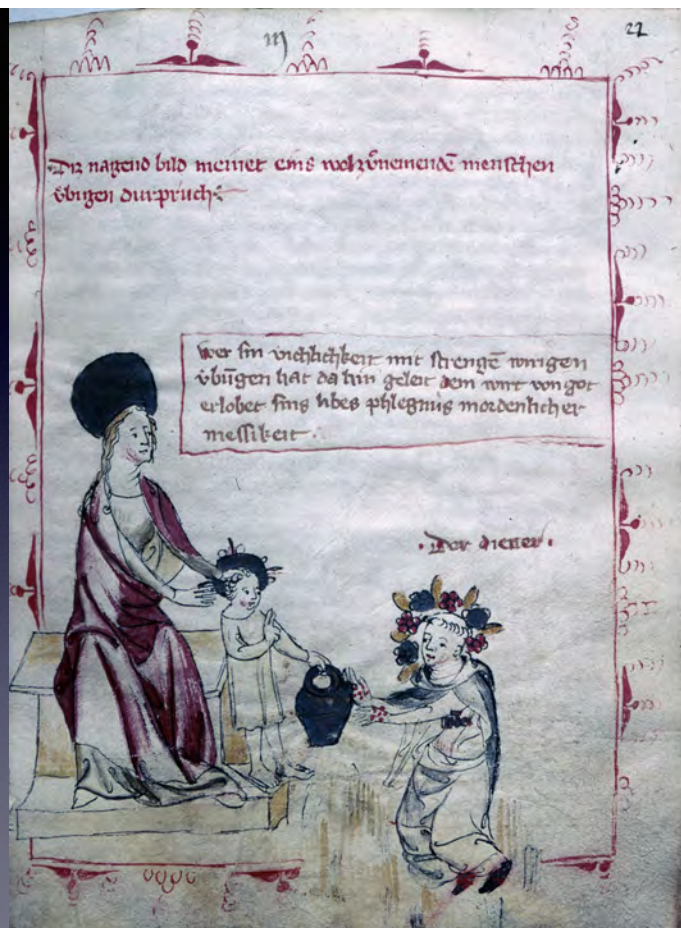 22
iij
Diz nagend bild meinet eins wol zůnemendē menschen
v̊bigen durpruch
wer sin vichlichkeit mit strengē wirigen
v̊būgen hat da hin geleit dem wirt von got
erlobet sins libes phlegnus in ordenlicher
messikeit.
· Der diener ·